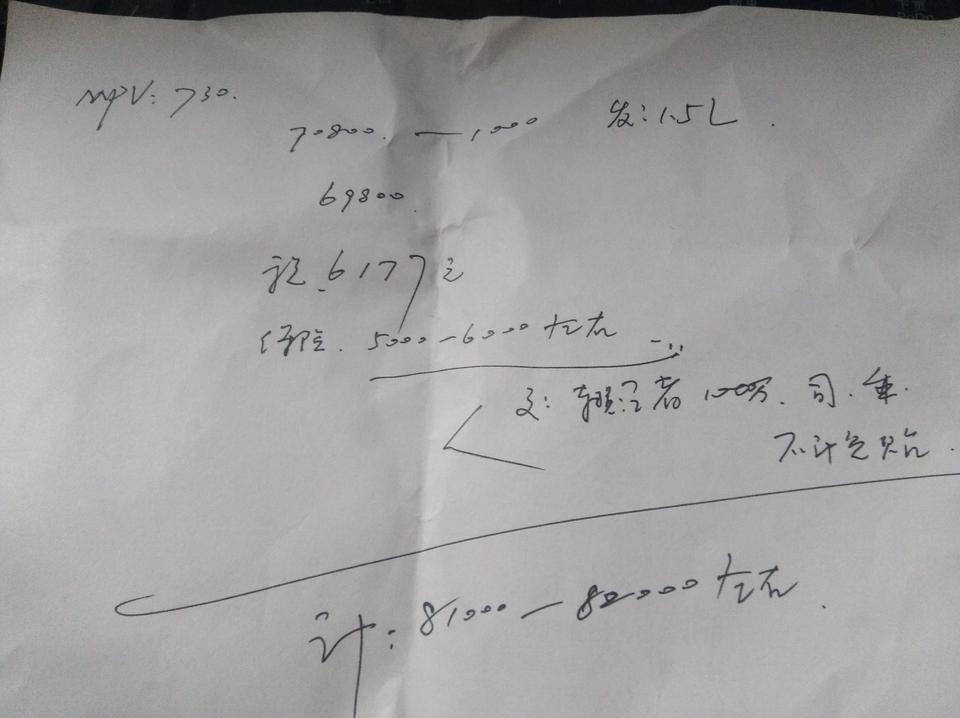 MPV: 730.
70800. — 1000 发: 1.5L.
69800.
税. 6177元
保险. 5000-6000左右
交: 三者100万. 司. 乘.
不计免赔.
计: 81000-82000左右.